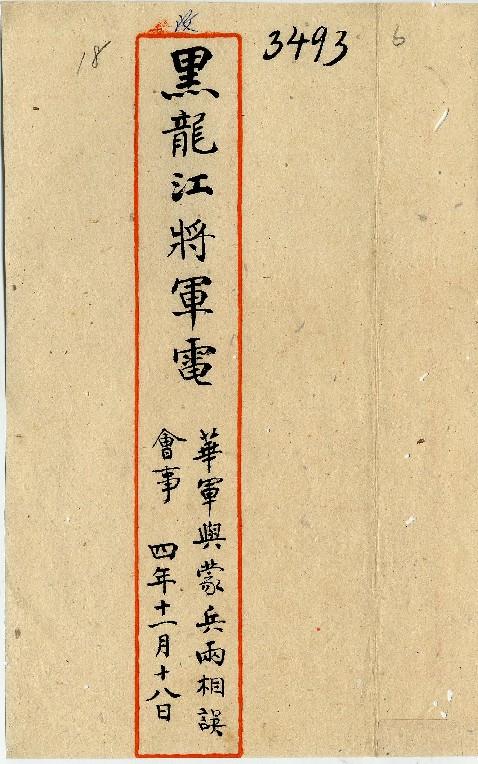 3493
6
18
黑龍江將軍電
華軍與蒙兵兩相誤
會事 四年十一月十八日